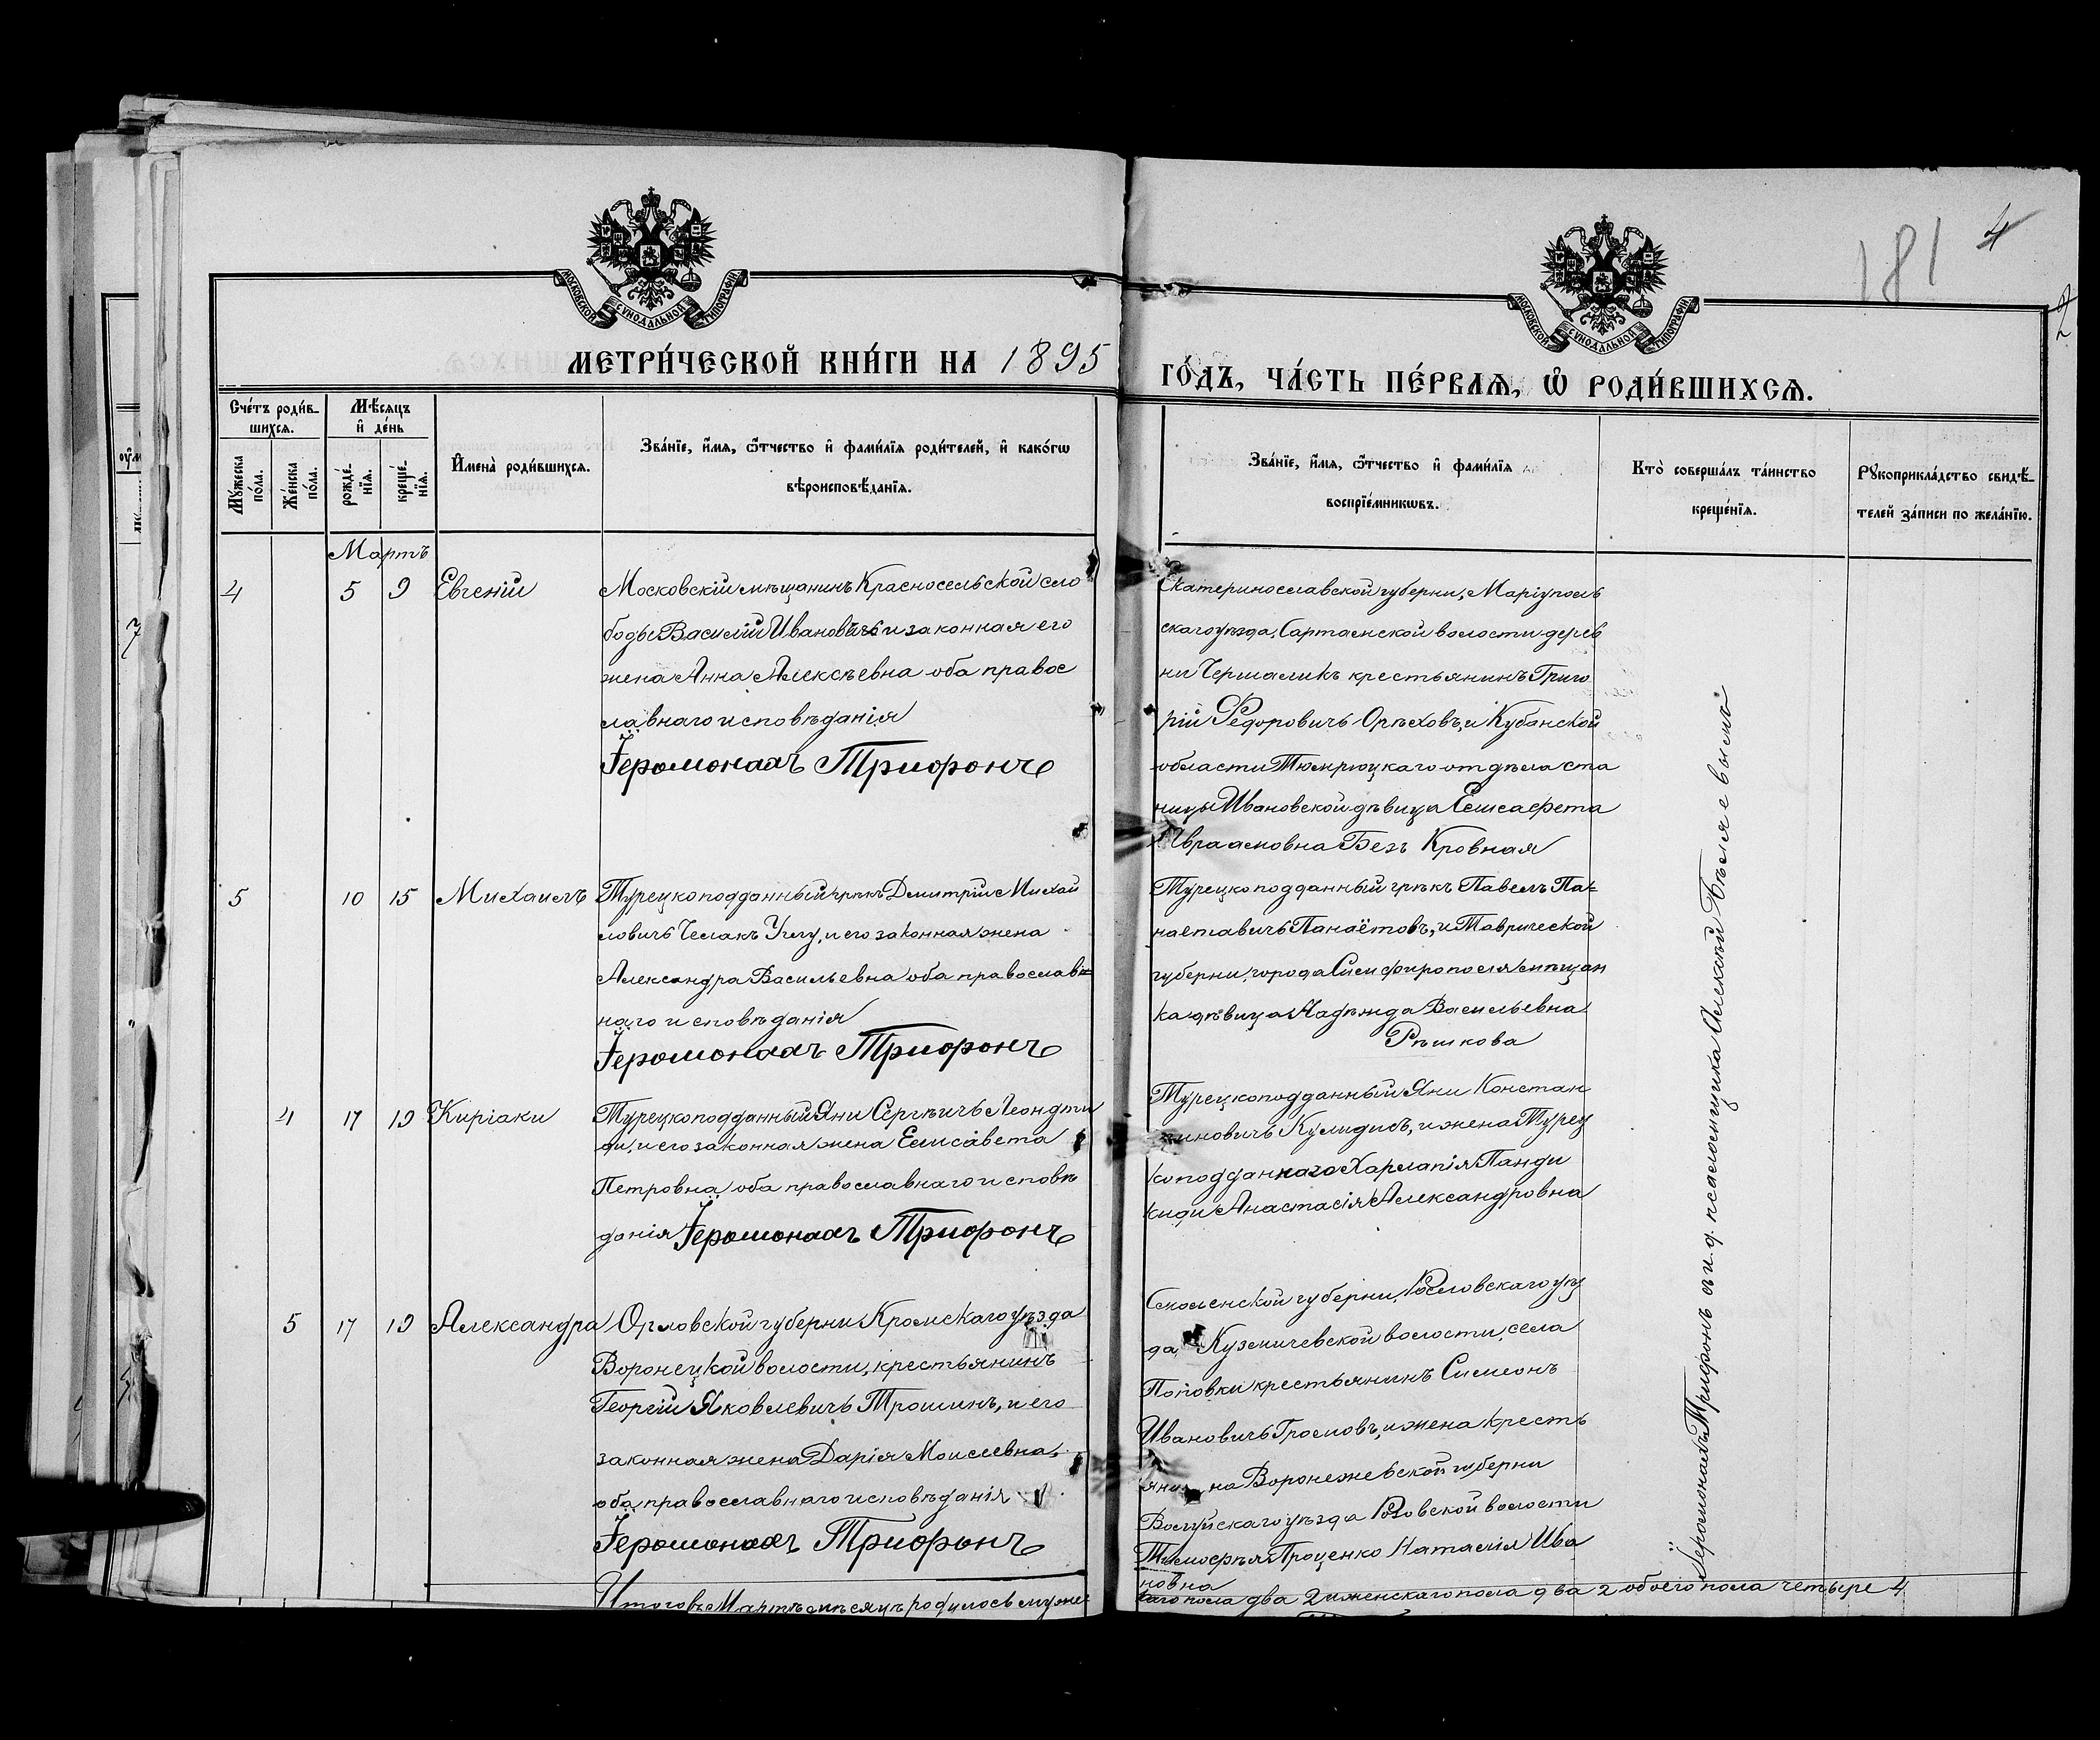 181 4
2
МОСКОВСКОЙ СѴНОДАЛЬНОЙ ТИПОГРАФІИ
МОСКОВСКОЙ СѴНОДАЛЬНОЙ ТИПОГРАФІИ
МЕТРИ́ЧЕСКОЙ КНИ́ГИ НА 1895
ГО́ДЪ, ЧА́СТЬ ПЕ́РВАѦ, Ѡ҆ РОДИ́ВШИХСѦ.
Сче́тъ роди́в-
шихсѧ.
Мѣ́сѧцъ
и҆ де́нь
Мꙋ́жеска
по́ла.
Же́нска
по́ла.
рожде́-
нїѧ.
креще́-
нїѧ.
И҆мена̀ роди́вшихсѧ.
Зва́нїе, и҆́мѧ, ѻ҆́тчество и҆ фами́лїѧ роди́телей, и҆ како́гѡ
вѣроисповѣ́данїѧ.
Зва́нїе, и҆́мѧ, ѻ҆́тчество и҆ фами́лїѧ
воспрїе́мникѡвъ.
Кто̀ соверша́лъ та́инство
креще́нїѧ.
Рꙋкоприкла́дство свидѣ́-
телей за́писи по жела́нїю.
Мартъ
4 5 9 Евгеній
Московскій мѣщанинъ Красносельской сло
боды Василій Ивановичъ и законная его
жена Анна Алексѣевна оба правос
лавнаго исповѣданія
Іеромонахъ Трифонъ
Екатеринославской губерни, Маріуполь
скаго уѣзда, Сартанской волости дерев
ни Чермаликъ крестьянинъ Григо
рій Федоровичъ Орѣховъ, и Кубанской
области Тюмрюцкаго отдѣла ста
ницы Ивановской дѣвица Елисафета
Авраамовна Безъ Кровная
5 10 15 Михаилъ
Турецкоподданный грѣкъ Димитрій Михай
ловичъ Челакъ Углу, и его законная жена
Александра Васильевна оба православ=
наго исповѣданія
Іеромонахъ Трифонъ
Турецкоподданный грѣкъ Павелъ Па=
наетавичъ Панаётовъ, и Таврической
губерни, города Симфирополя мѣщан
ка дѣвица Надѣжда Васильевна
Рѣшкова
4 17 19 Киріаки
Турецкоподданный Яни Сергѣичъ Леондти
ди, и его законная жена Елисавета
Петровна оба православнаго исповѣ
данія Іеромонахъ Трифонъ
Турецкоподданный Яни Констан
тиновичъ Кулидисъ, и жена Турец
коподданнаго Харлапія Панди
киди Анастасія Александровна
5 17 19 Александра
Орловской губерни Кромскаго уѣзда
Воронецкой волости, крестьянинъ
Георгій Яковлевичъ Трошинъ, и его
законная жена Дарія Моисевна,
оба православнаго исповѣданія
Іеромонахъ Трифонъ
Смоленской губерни, Рословскаго уѣз
да, Куземичевской волости, села
Поповки крестьянинъ Симеонъ
Ивановичъ Громовъ, и жена кресть
янина Воронежевской губерни
Волуйскаго уѣзда Ровской волости
Тимофѣя Проценко Наталія Ива
новна
Іеромонахъ Трифонъ съ и. д. псаломщика Алексѣй Бѣляевымъ
Итого въ Мартѣ мѣсяцѣ родилось муже
скаго пола два 2 и женскаго пола два 2 обоего пола четыре 4